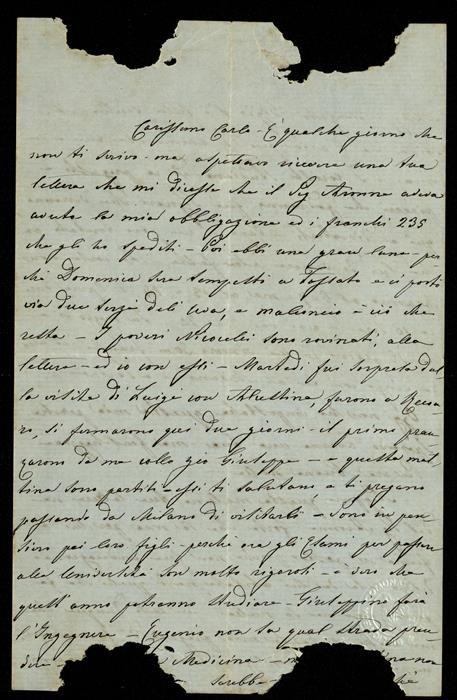 Carissimo Carlo - È qualche giorno che
non ti scrivo - ma aspettavo ricevere una tua
lettera che mi dicesse che il Sig aveva
avuto la mia obbligazione ed i franchi 235
che gli ho spediti - Poi ebbi una gran per
chè Domenica sera tempestò a Fossato e ci portò
via due terzi dell'uva, e malconcio è ciò che
resta - I poveri Nicolli sono rovinati, alla
lettera - ed io con essi - Martedì fui sorpresa dal
la visita di Luigi con, furono a Recoa
ro, si fermarono qui due giorni - il primo pran
zarono da me collo zio Giuseppe - e questa mat
tina sono partiti - essi ti salutano, e ti pregano
passando da Milano di visitarli - Sono in pen
siero pei loro figli - perchè ora gli Esami per passare
alla Università son molto rigorosi - è vero che
quest'anno potranno studiare - Giuseppino farà
l'Ingegnere - Eugenio non sa qual strada pren
dere - Medicina - non
sarebbe